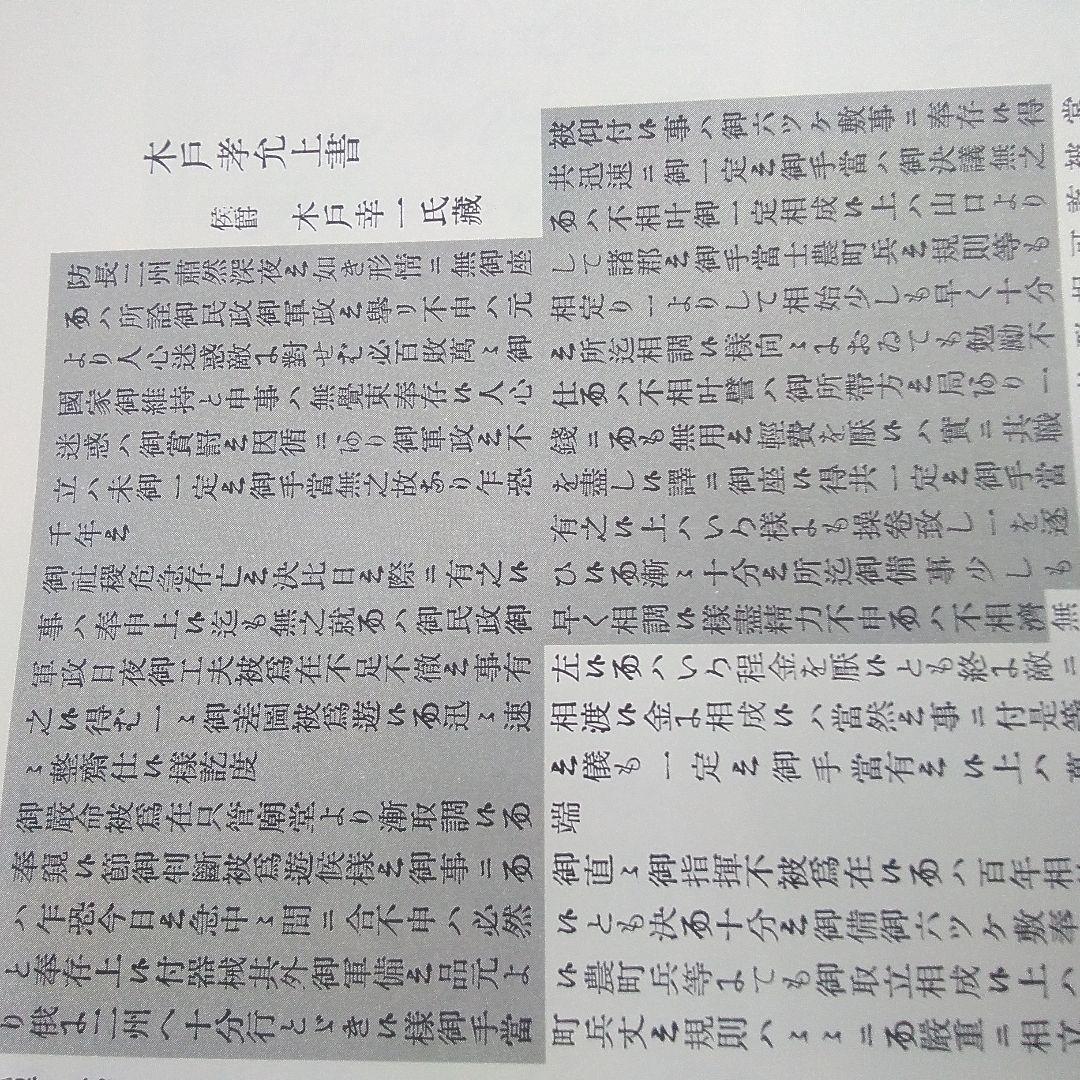 木戸孝允上書
侯爵 木戸幸一氏藏
防長二州肅然深夜之如き形情ニ無御座
而ハ所詮御民政御軍政之擧リ不申ハ元
より人心迷惑敵ニ對せむ必百敗萬〻御
國家御維持と申事ハ無覺束奉存候人心
迷惑ハ御賞罰之因循ニゟり御軍政之不
立ハ未御一定之御手當無之故なり乍恐
千年之
御社稷危急存亡之決比日之際ニ有之候
事ハ奉申上候迄も無之就而ハ御民政御
軍政日夜御工夫被爲在不足不徹之事有
之候得む一〻御差圖被爲遊候而迅〻速
〻整齋仕候樣訖度
御嚴命被爲在只管廟堂より漸取調候而
奉窺候節御判斷被爲遊候樣之御事ニ而
ハ乍恐今日之急中〻間ニ合不申ハ必然
と奉存上候付器械其外御軍備之品元よ
り俄よ二州へ十分行とゞき候樣御手當
被仰付候事ハ御六ツケ敷事ニ奉存候得
共迅速ニ御一定之御手當ハ御決議無之
而ハ不相叶御一定相成候上ハ山口より
して諸郡之御手當士農町兵之規則等も
相定り一よりして相始少しも早く十分
之所迄相調候樣向〻よおゐても勉勵不
仕而ハ不相叶譬ハ御所帶方之局ゟり一
錢ニ而も無用之輕費を厭候ハ實ニ共職
を盡し候譯ニ御座候得共一定之御手當
有之候上ハいろ樣よも操卷致し一を逐
ひ候而漸〻十分之所迄御備事少しも
早く相調候樣盡精力不申而ハ不相濟無
左候而ハいろ程金を厭候とも終よ敵ニ
相渡候金よ相成候ハ當然之事ニ付是等
之儀も一定之御手當有之候上ハ萬
端
御直〻御指揮不被爲在候而ハ百年相
候とも決而十分之御備御六ツケ敷奉
候農町兵等よても御取立相成候上ハ
町兵丈之規則ハ〻〻ニ而嚴重ニ相立